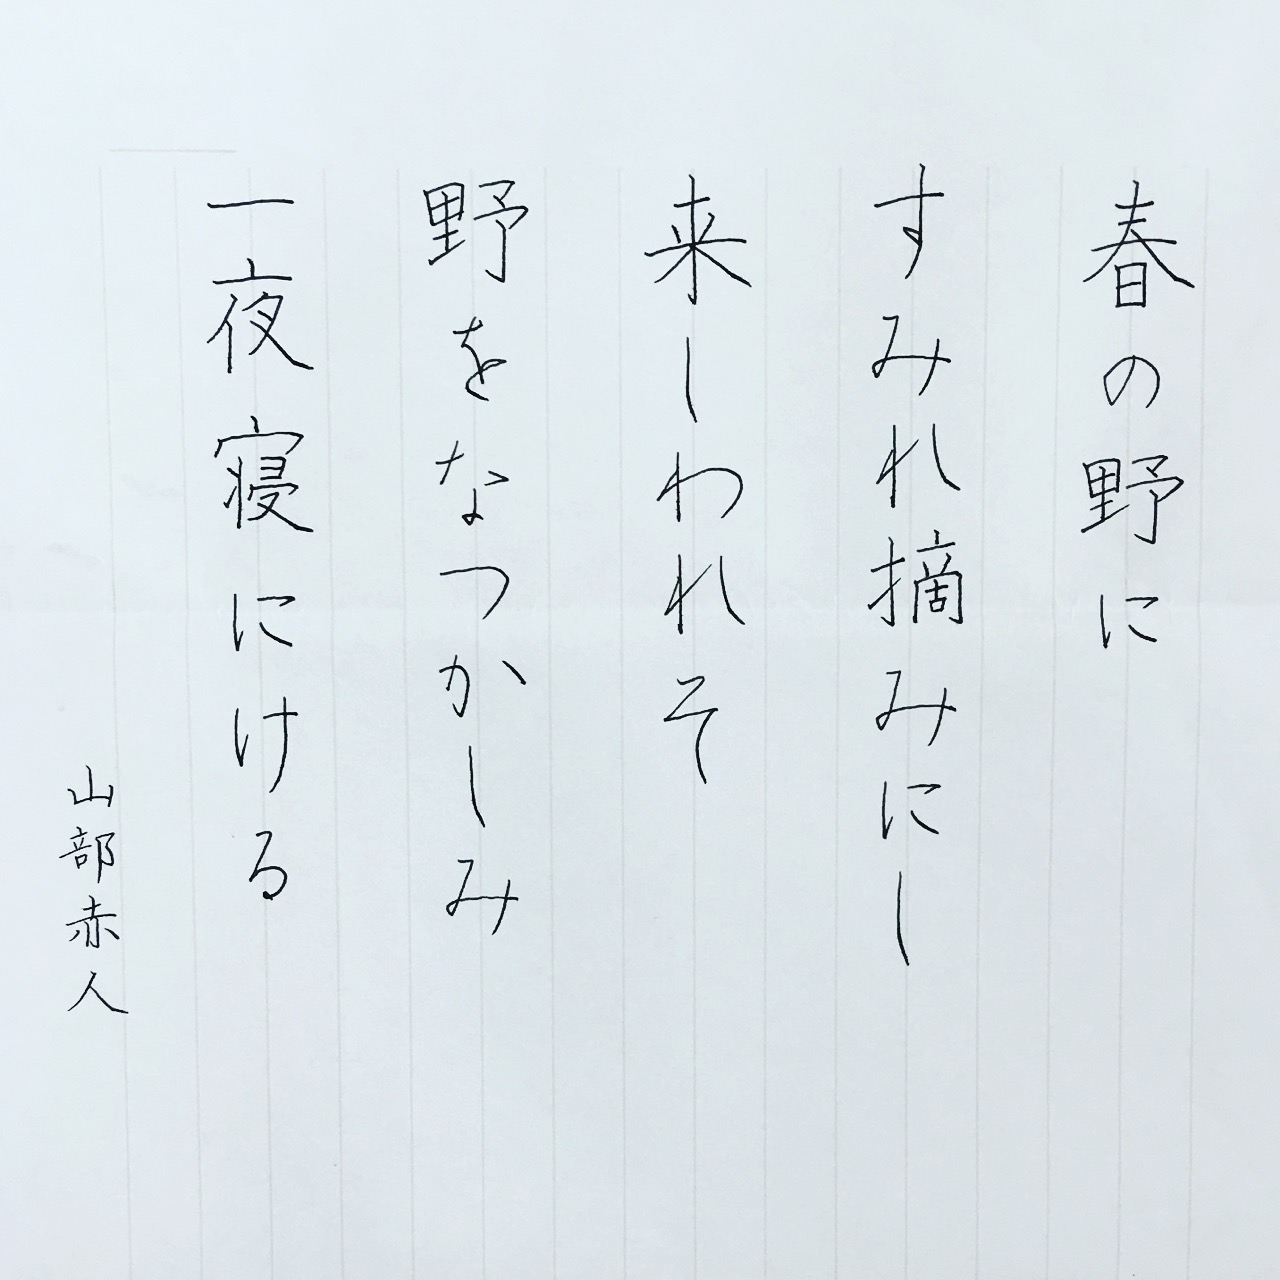 春の野に
すみれ摘みにし
来しわれそ
野をなつかしみ
一夜寝にける
山部赤人